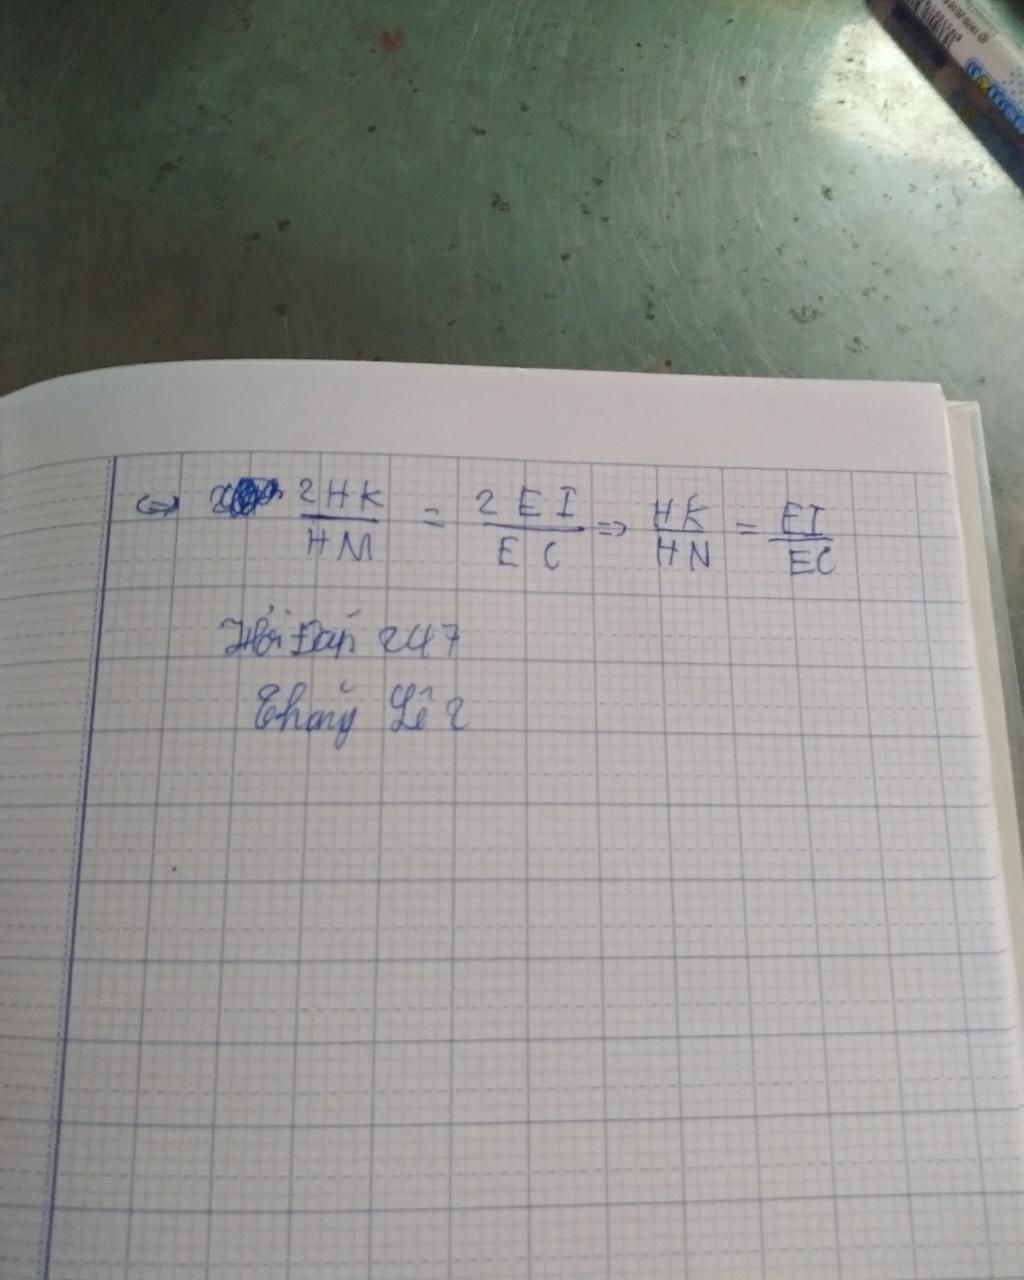 ⇔ 2HK/HM = 2EI/EC ⇒ HK/HN = EI/EC
Hỏi Đáp 247
Thắng Lê 2